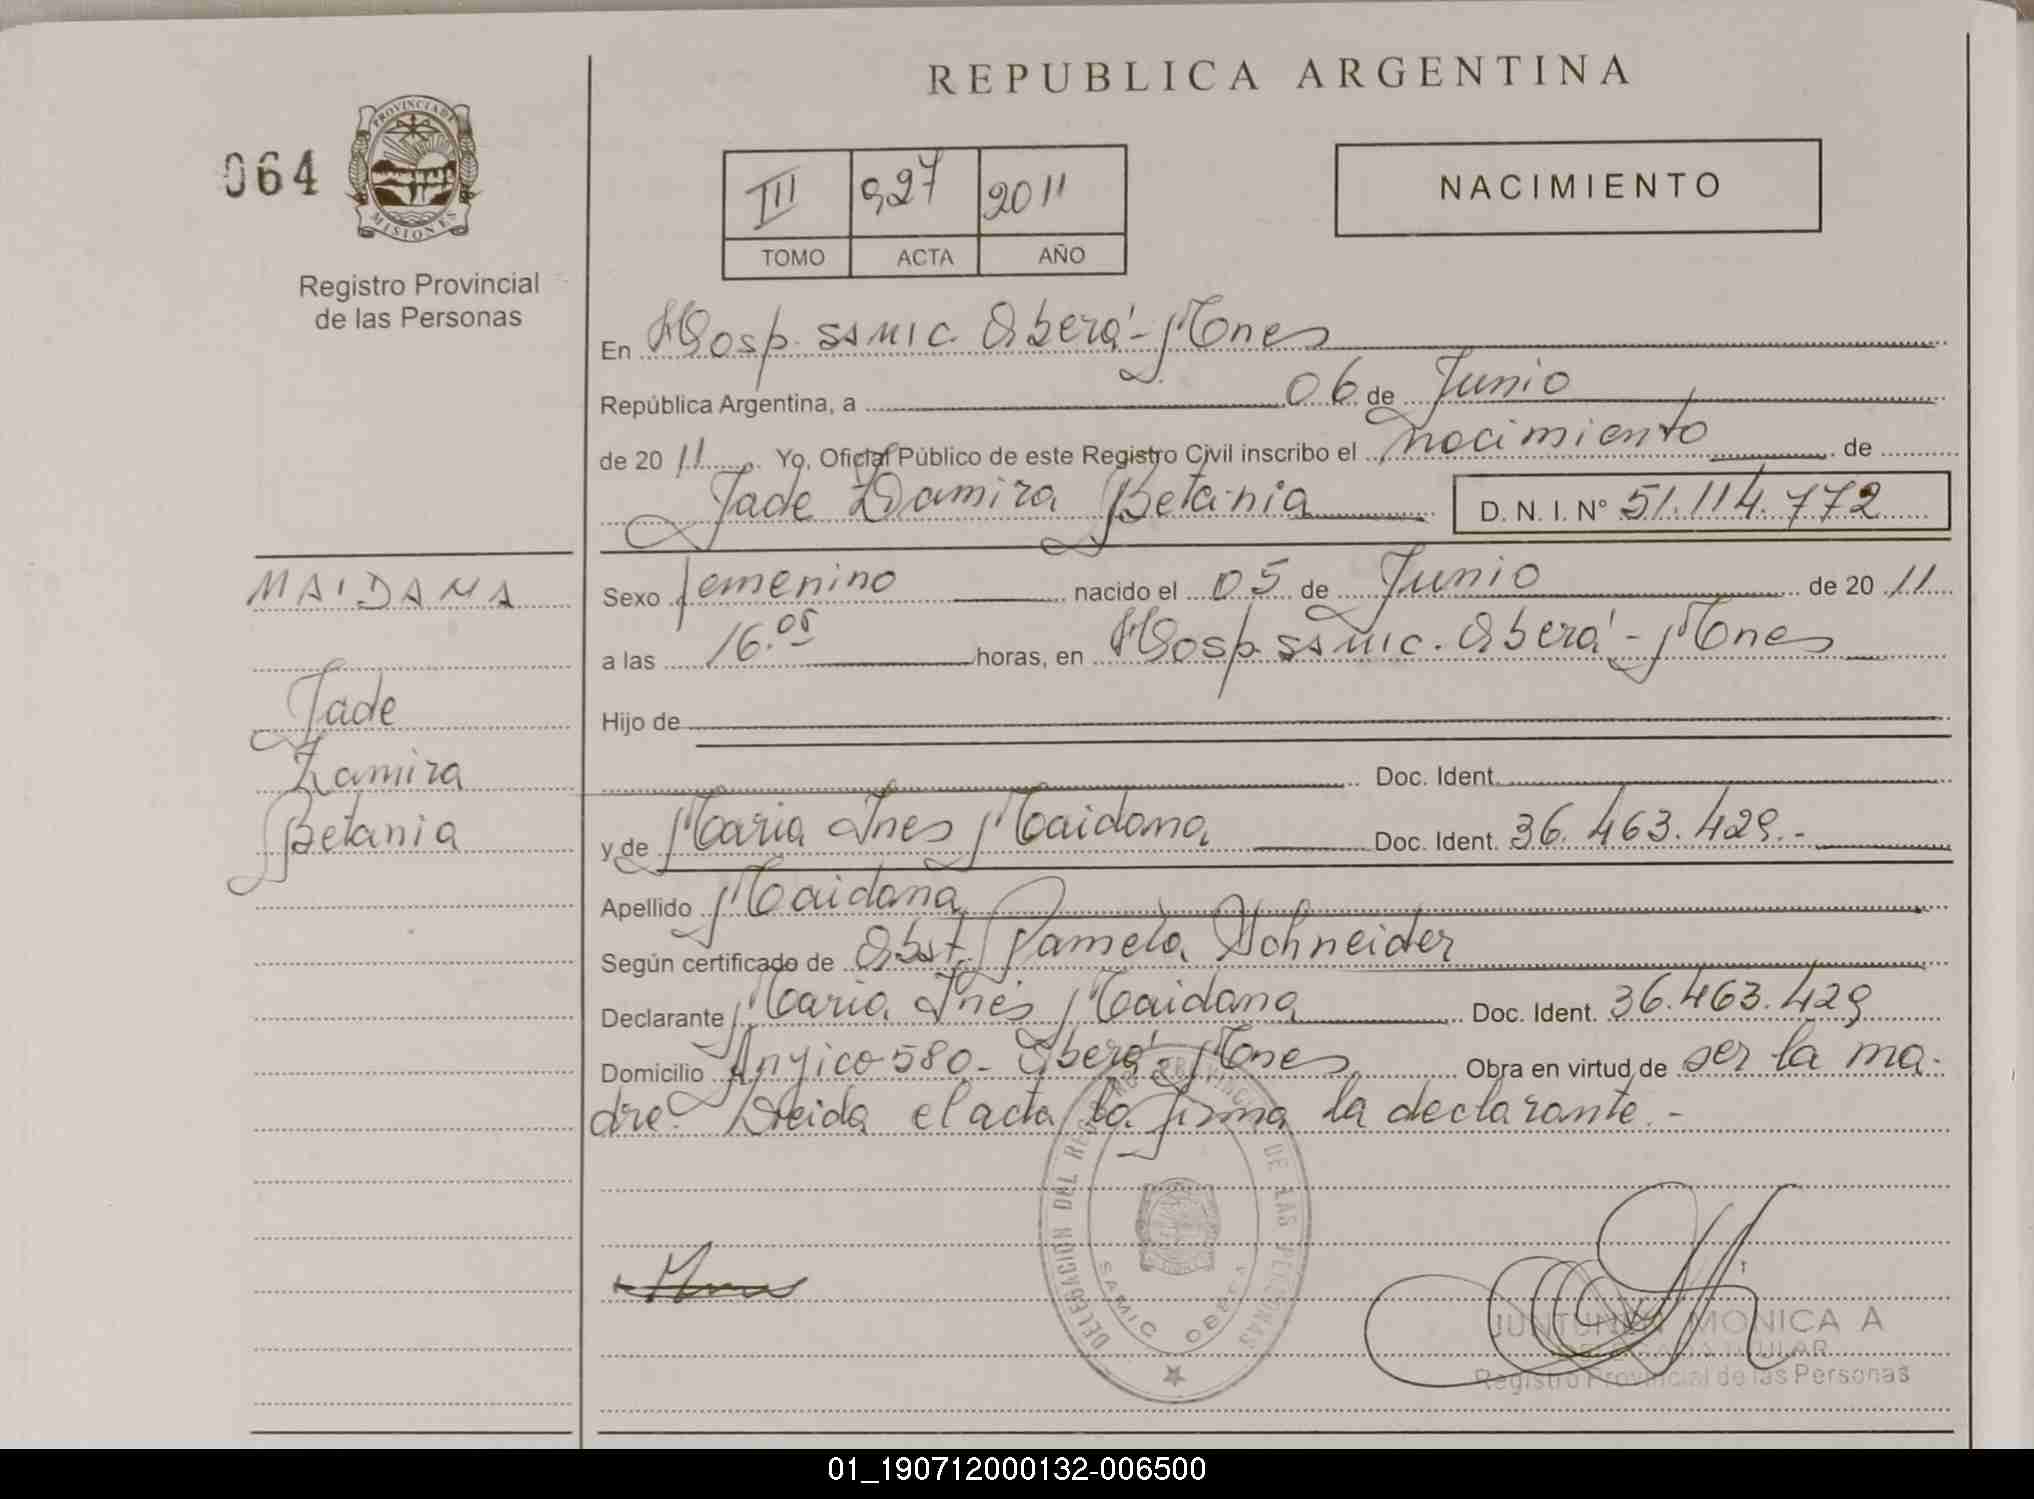 REPUBLICA ARGENTINA
064
PROVINCIA DE
MISIONES
Registro Provincial
de las Personas
III 927 2011
TOMO ACTA AÑO
NACIMIENTO
En Hosp. SAMIC Oberá - Mnes
República Argentina, a 06 de Junio
de 2011. Yo, Oficial Público de este Registro Civil inscribo el nacimiento de
Jade Zamira Betania D. N. I. N° 51.114.772
MAIDANA
Jade
Zamira
Betania
Sexo femenino nacido el 05 de Junio de 2011
a las 16.05 horas, en Hosp. SAMIC. Oberá - Mnes
Hijo de
Doc. Ident.
y de Maria Ines Maidana Doc. Ident. 36.463.429.-
Apellido Maidana
Según certificado de Obst. Pamela Schneider
Declarante Maria Inés Maidana Doc. Ident. 36.463.429
Domicilio 580 - Oberá - Mnes Obra en virtud de ser la ma-
dre. Leida el acta la firma la declarante.-
DELEGACION DEL REGISTRO PROVINCIAL DE LAS PERSONAS
SAMIC OBERA
MONICA A
Registro Provincial de las Personas
01_190712000132-006500